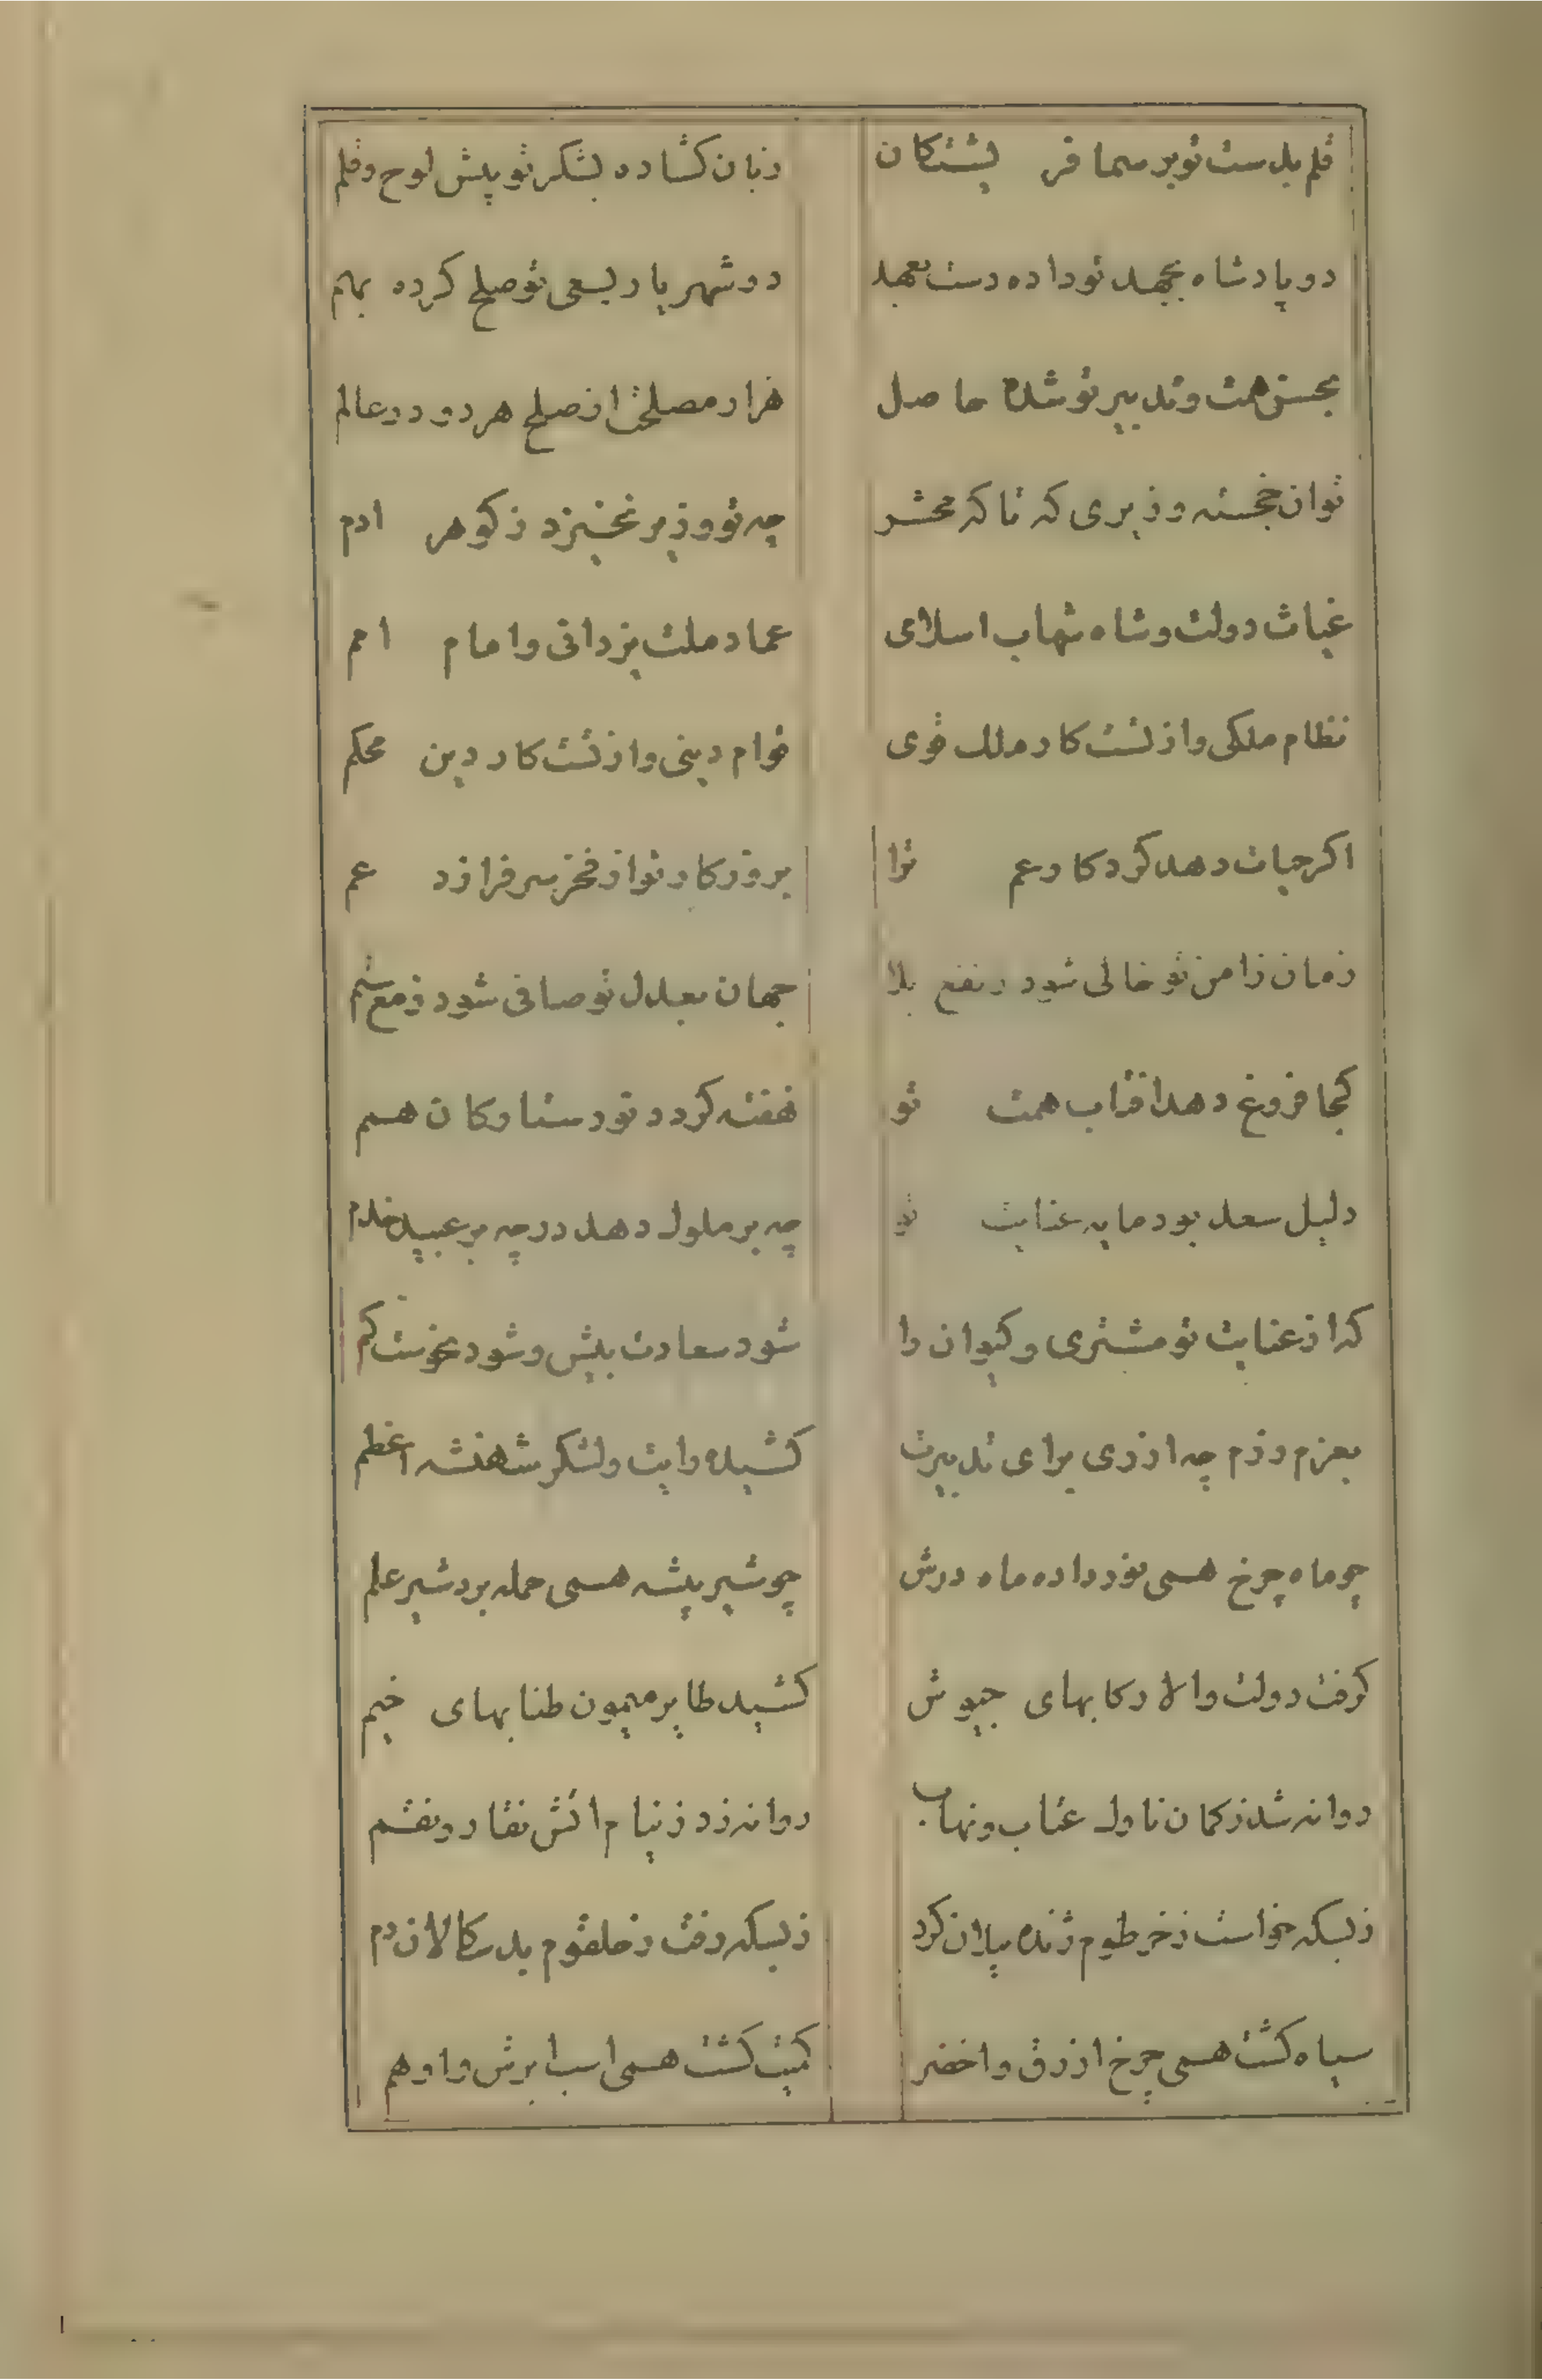 قلم بدست تو بر سما فر یشتکان زبان کشاده بشکر تو پیش لوح و قلم
دو پادشاه بجهد تو داده دست بعهد دو شهریار بسعی تو صلح کرده بهم
بحسن همت و تدبیر تو شده حاصل هزار مصلحت از صلح هر دو در عالم
توان خجسته وزیری که تا که محشر چه تو وزیر نخیزد ز کوهر ادم
غیاث دولت و شاه شهاب اسلامی عماد ملت یزدانی و امام امم
نظام ملکی و از تست کار ملک قوی قوام دینی و از تست کار دین محکم
اکر حیات دهد کردکار عم ترا بروزکار تو از فخر سر فرازد عم
زمان ز امن تو خالی شود ز نفع بلا جهان بعدل تو صافی شود ز مع ستم
کجا فروغ دهد افتاب همت تو نهفته کردد نور ستارکان همم
دلیل سعد بود مایه عنایت تو چه بر ملوک دهد درچه بر عبید خدم
که از عنایت تو مشتری و کیوان را شود سعادت بیش و شود نحوست کم
بعزم رزم چه از ری برای تدبیرت کشیده رایت و لشکر شهنشه اعظم
چو ماه چرخ همی نور داده ماه درش چو شیر بیشه همی حمله برد شیر علم
کرفت دولت والا رکابهای جیوش کشید طایر میمون طنابهای خیم
روانه شد ز کمان ناوک عتاب و نهاب روانه زد ز نیام اتش نقار و نقم
ز بسکه خواست ز خرطوم ژنده پیلان کرد ز بسکه رفت ز حلقوم بدسکالان دم
سیاه کشت همی چرخ ازرق و اخضر کمیت کشت همی اسب ابرش و ادهم